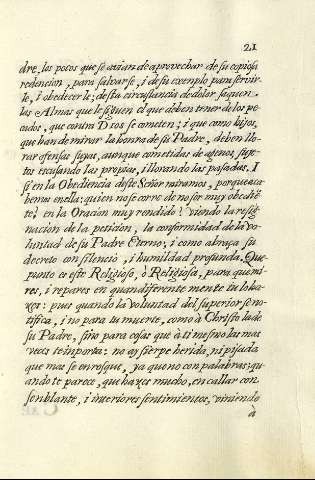 21
dre, los pocos que se avian de aprovechar de su copiosa
redencion, para salvarse, i de su exemplo para servir-
le, i obedecerle; desta circustancia de dolor saquen
las Almas que le siguen el que deben tener de los pe-
cados, que contra Dios se cometen; i que como hijos,
que han de mirar la honra de su Padre, deben llo-
rar ofensas suyas, aunque cometidas de agenos suge-
tos escusando las proprias, i llorando las pasadas. I
si en la Obediencia deste Señor miramos, por que aca-
bemos en ella: quien no se corre de no ser muy obediē-
te? en la Oracion muy rendido? viendo la resig-
nacion de la peticion, la conformidad de la vo-
luntad de su Padre Eterno; i como abraça su
decreto con silencio, i humildad profunda. Que
punto es este Religioso, ò Religiosa, para que mi-
res, i repares en quan diferente mente tu lo ha-
zes: pues quando la voluntad del superior se no-
tifica, i no para tu muerte, como à Christo la de
su Padre, sino para cosas que à ti mesmo las mas
veces te importa: no ay sierpe herida, ni pisada
que mas se enrosque, ya que no con palabras; qu-
ando te parece, que hazes mucho, en callar con
senblante, i interiores sentimientos, viniendo
à